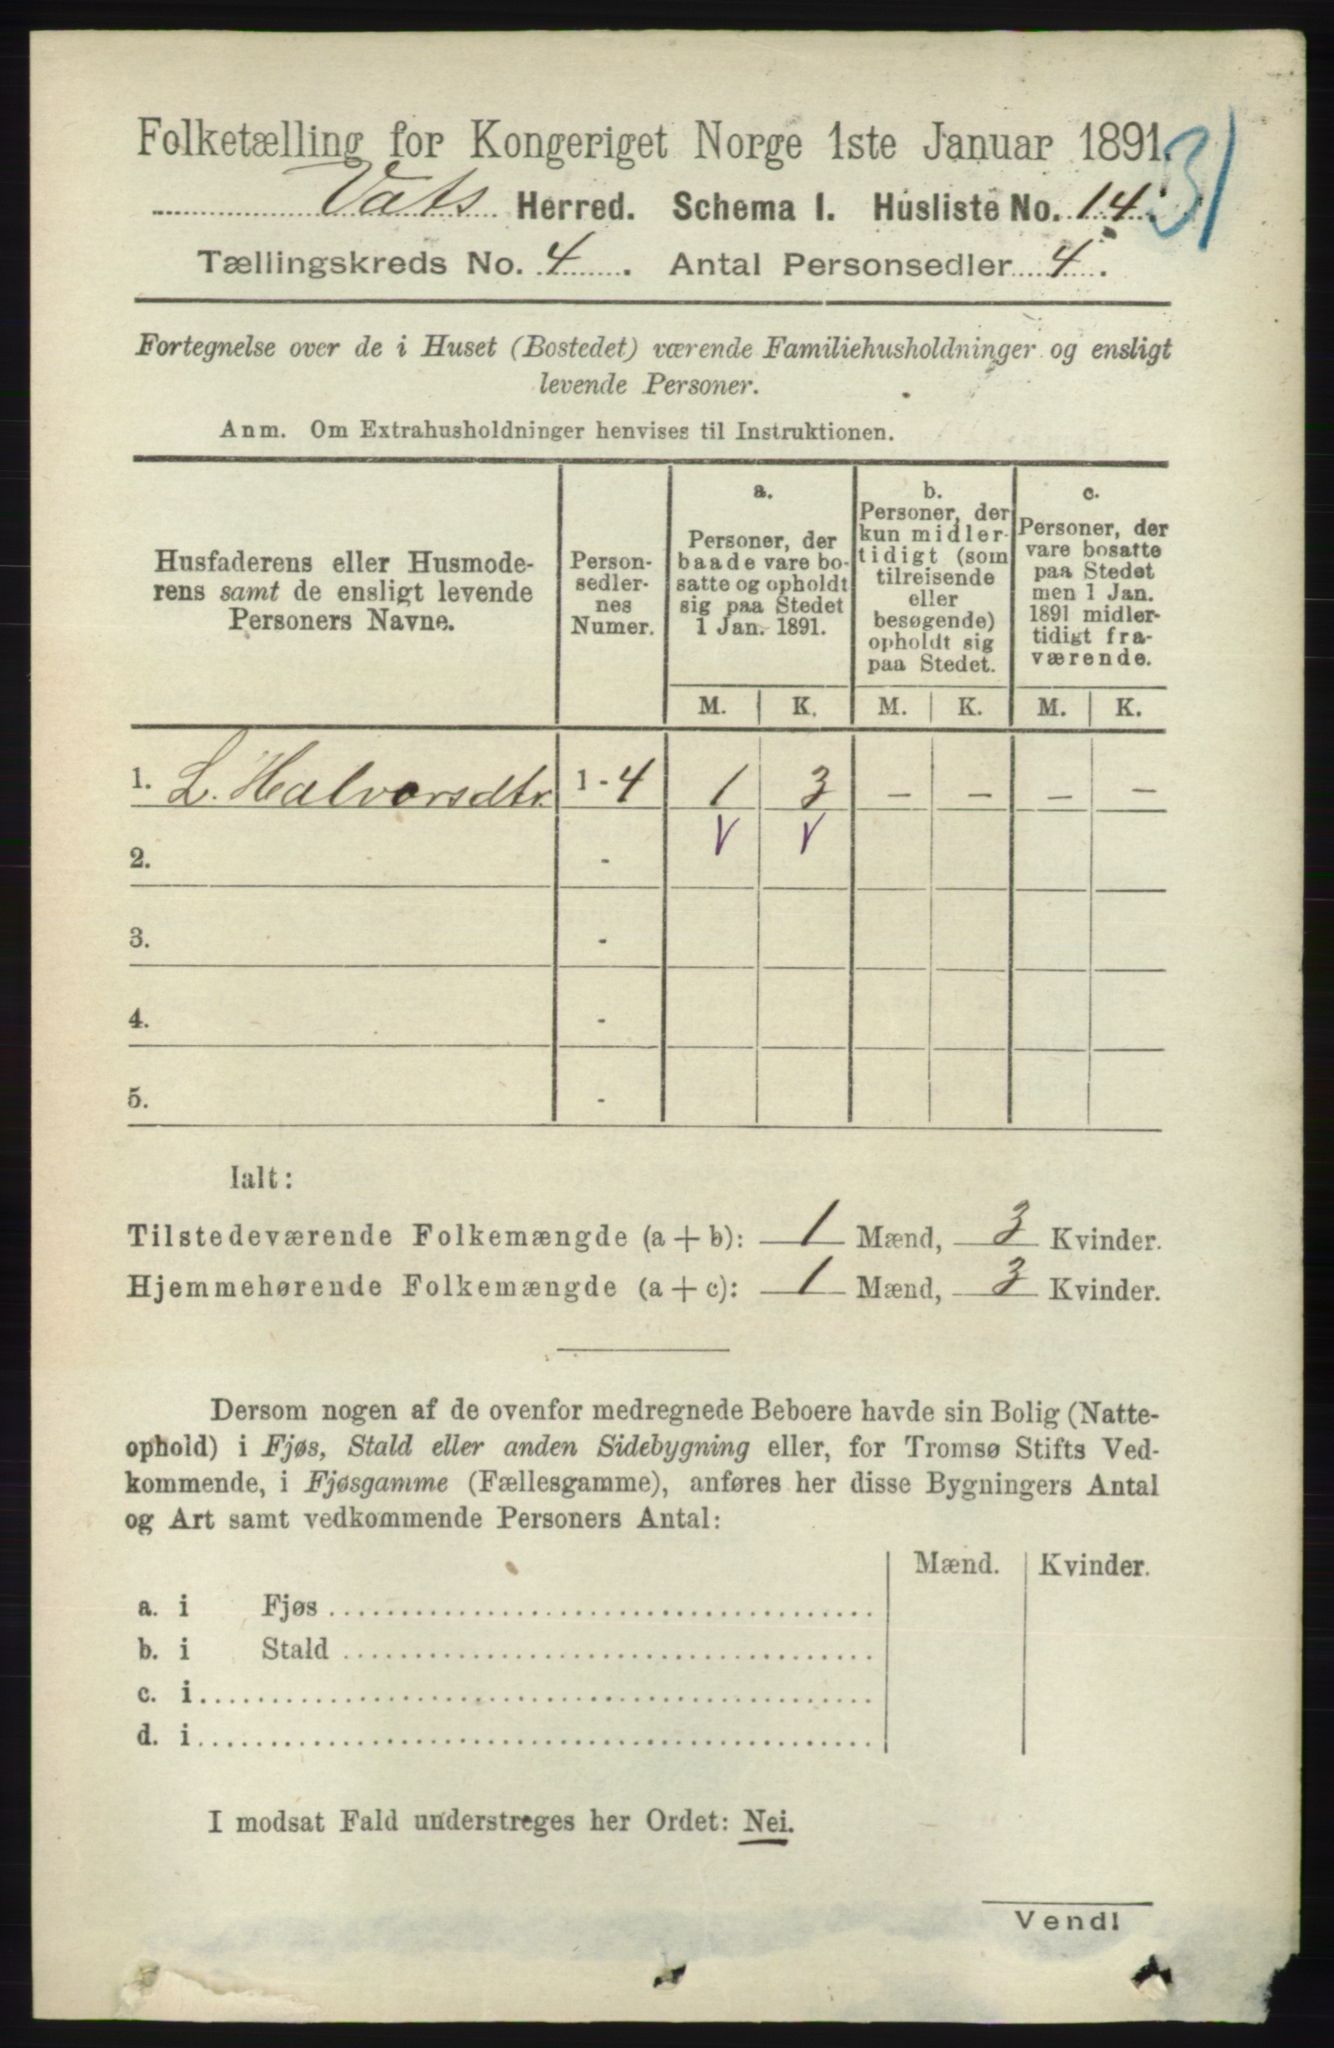 Folketælling for Kongeriget Norge 1ste Januar 1891.
31
Vats Herred. Schema I. Husliste No. 14.
Tællingskreds No. 4. Antal Personsedler 4.
Fortegnelse over de i Huset (Bostedet) værende Familiehusholdninger og ensligt
levende Personer.
Anm. Om Extrahusholdninger henvises til Instruktionen.
Husfaderens eller Husmode-
rens samt de ensligt levende
Personers Navne.
Person-
sedler-
nes
Numer.
a.
Personer, der
baade vare bo-
satte og opholdt
sig paa Stedet
1 Jan. 1891.
b.
Personer, der
kun midler-
tidigt (som
tilreisende
eller
besøgende)
opholdt sig
paa Stedet.
c.
Personer, der
vare bosatte
paa Stedet
men 1 Jan.
1891 midler-
tidigt fra-
værende.
M. K. M. K. M. K.
1. L. Halvorsdtr. 1 - 4 1 3 - - - -
V V
2. -
3. -
4. -
5. -
Ialt:
Tilstedeværende Folkemængde (a + b): 1 Mænd, 3 Kvinder.
Hjemmehørende Folkemængde (a + c): 1 Mænd, 3 Kvinder.
Dersom nogen af de ovenfor medregnede Beboere havde sin Bolig (Natte-
ophold) i Fjøs, Stald eller anden Sidebygning eller, for Tromsø Stifts Ved-
kommende, i Fjøsgamme (Fællesgamme), anføres her disse Bygningers Antal
og Art samt vedkommende Personers Antal:
Mænd. Kvinder.
a. i Fjøs
b. i Stald
c. i
d. i
I modsat Fald understreges her Ordet: Nei.
Vend!